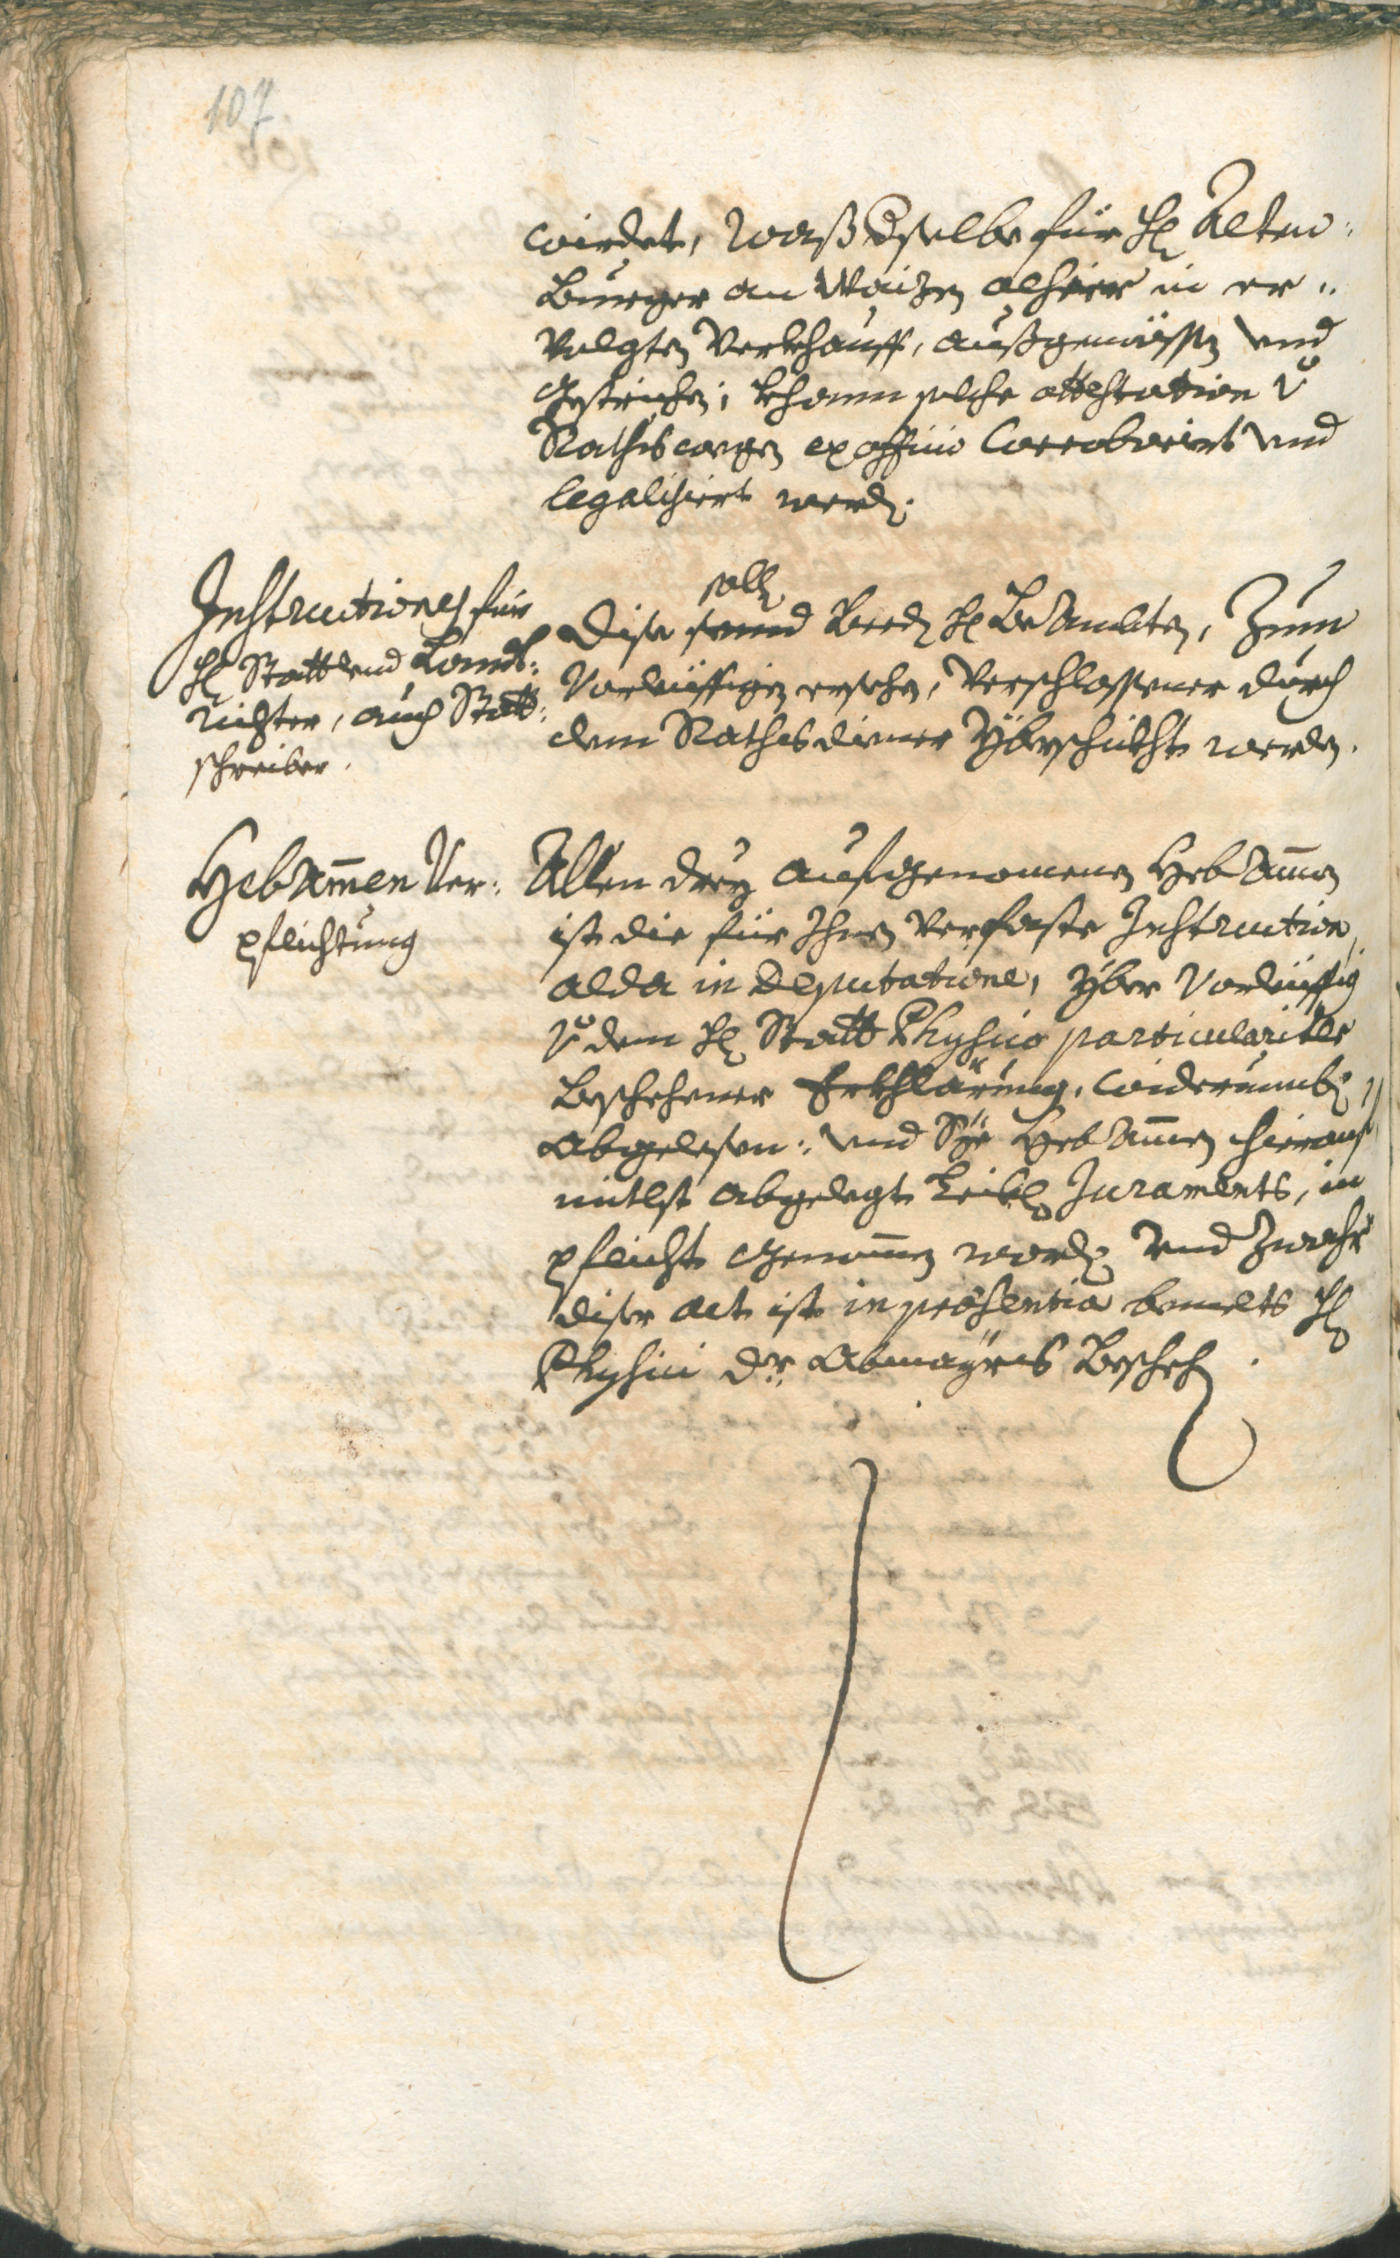 107.
wirdet, waß Dselbe für H Alten,
Burger an Waizen alhier in er„
volgten Verkhauff, außgemässen und
gestrichen; khann solche attestation v
Rathswegen ex officio Corroboriert und
legalisiert werden.
Instructiones für
H Statt und Landt„
richter, auch Statt„
schreiber.
solle
Dise seind beeden H Beambten, zum
vorleiffigen ersehen, verschlossener durch
dem Rathsdiener yberschikht werden.
Hebammen Ver„
pflichtung
Allen drey aufgenomenen Hebammen
ist die für Ihnen verfaste Instruction
alda in Deputatione, yber vorleiffig
v dem H Statt Physico particulariter
beschehener Erkhlärung, widerumb
abgelesen: und Sye Hebammen hierauf
mitlst abgelegt Leibl Juraments, in
pflicht genommen worden und zwahr
diser act ist in præsentia bemelts H
Physici Dr. Abmayrs beschehen.